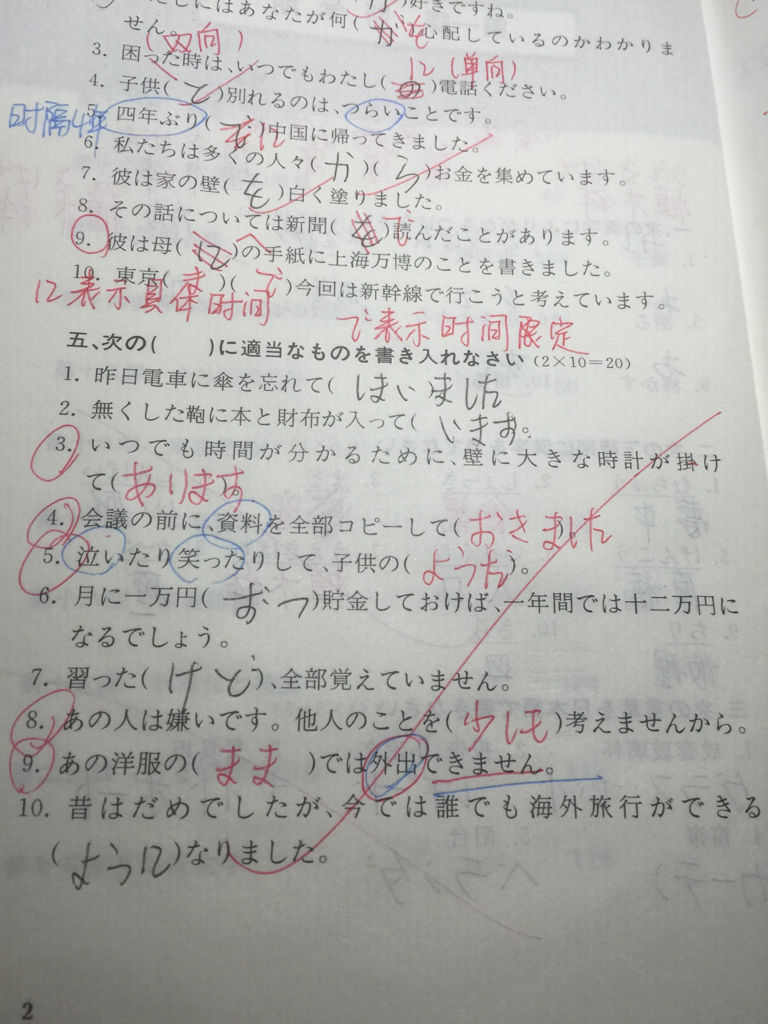 たしにはあなたが何( がを )心配しているのかわかりま
せん。
(双向)
3. 困った時は、いつでもわたし( の )電話ください。
に(単向)
4. 子供( と )別れるのは、つらいことです。
时隔4年
5. 四年ぶり( に )中国に帰ってきました。
6. 私たちは多くの人々( か )( ら )お金を集めています。
7. 彼は家の壁( を )白く塗りました。
8. その話については新聞( で )読んだことがあります。
9. 彼は母( に へ )の手紙に上海万博のことを書きました。
10. 東京( ま )( で )今回は新幹線で行こうと考えています。
に表示具体时间
で表示时间限定
五、次の( )に適当なものを書き入れなさい(2×10=20)
1. 昨日電車に傘を忘れて( しまいました
2. 無くした鞄に本と財布が入って( います。
3. いつでも時間が分かるために、壁に大きな時計が掛け
て( あります
4. 会議の前に、資料を全部コピーして( おきました
5. 泣いたり笑ったりして、子供の( ようだ )。
6. 月に一万円( ずつ )貯金しておけば、一年間では十二万円に
なるでしょう。
7. 習った( けど )、全部覚えていません。
8. あの人は嫌いです。他人のことを( 少しも )考えませんから。
9. あの洋服の( まま )では外出できません。
10. 昔はだめでしたが、今では誰でも海外旅行ができる
( ように )なりました。
2